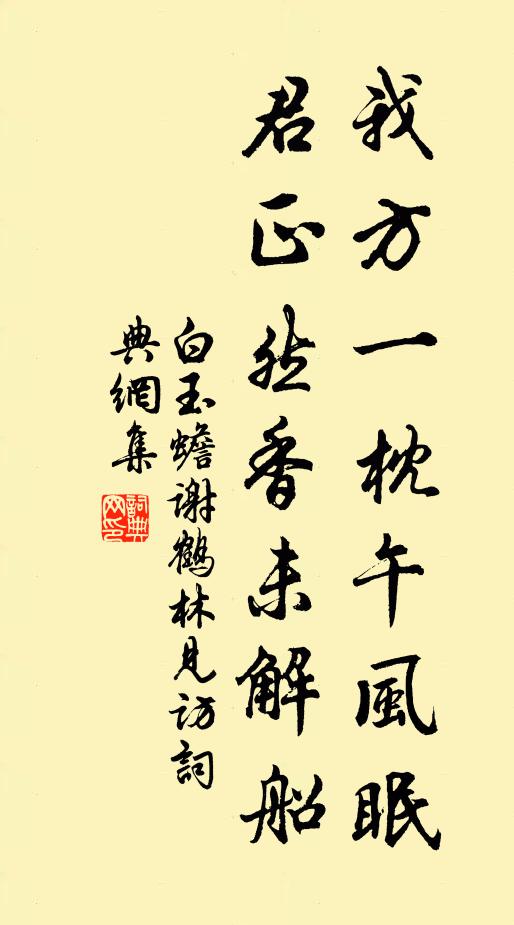 我方一枕午風眠
君正然香未解船
白玉蟾謝鶴林見訪詞
典網集
詞典網印